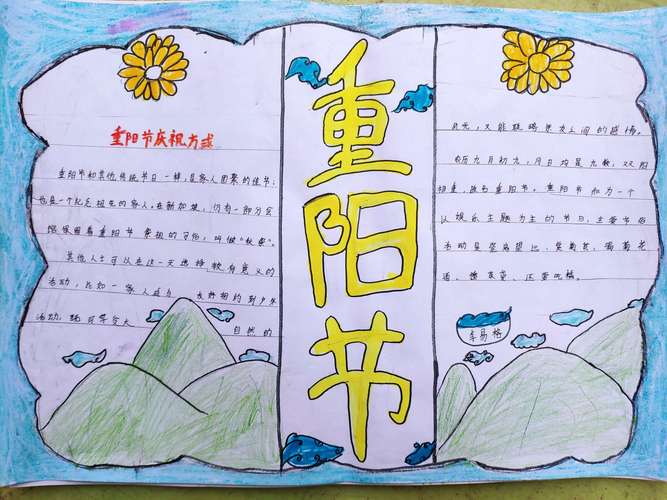 重阳节庆祝方式
重阳节和其他传统节日一样,是家人团聚的佳节;
也是一个纪念祖先的家人。在新加坡,仍有一部分家
庭保留着重阳节祭祖的习俗,叫做“秋祭”。
其他人士可以在这一天选择较有意义的
活动,比如一家人或与友好相约到户外
活动,既可享受大
自然的
重
阳
节
风光,又能联络亲友之间的感情。
农历九月初九,月日均是九数,双阳
相重,故名重阳节。重阳节和为一个
以娱乐主题为主的节日,主要节俗
活动是登高望远、赏菊花、
酒、插茱萸、